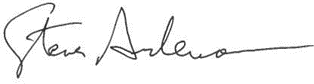 Steven Anderson